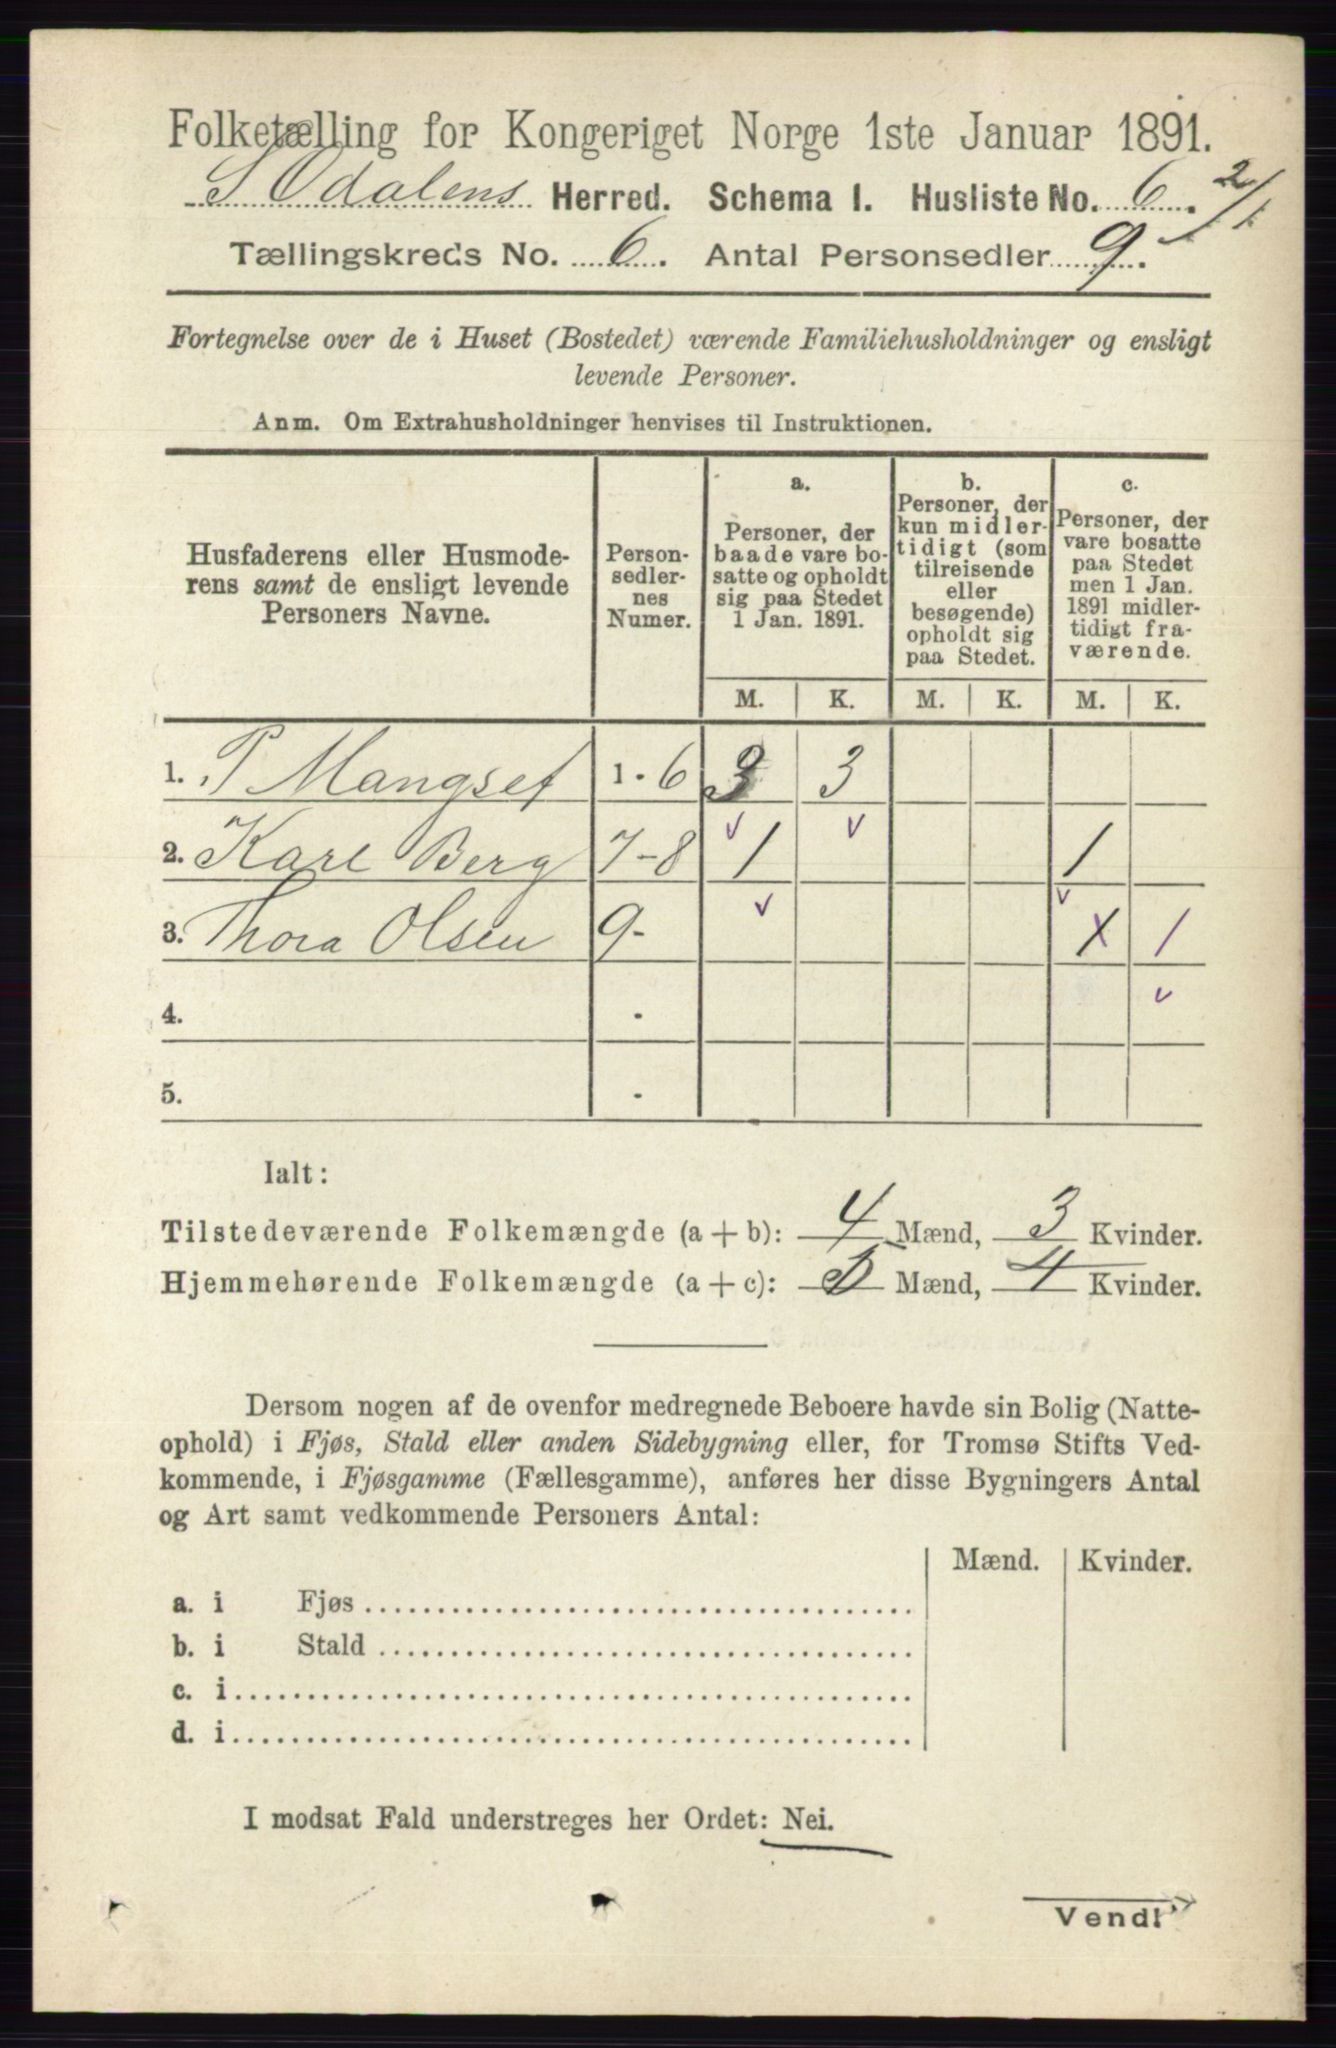 Folketælling for Kongeriget Norge 1ste Januar 1891.
S Odalens Herred. Schema I. Husliste No. 6. 2/1
Tællingskreds No. 6. Antal Personsedler 9.
Fortegnelse over de i Huset (Bostedet) værende Familiehusholdninger og ensligt
levende Personer.
Anm. Om Extrahusholdninger henvises til Instruktionen.
Husfaderens eller Husmode-
rens samt de ensligt levende
Personers Navne.
Person-
sedler-
nes
Numer.
a.
Personer, der
baade vare bo-
satte og opholdt
sig paa Stedet
1 Jan. 1891.
b.
Personer, der
kun midler-
tidigt (som
tilreisende
eller
besøgende)
opholdt sig
paa Stedet.
c.
Personer, der
vare bosatte
paa Stedet
men 1 Jan.
1891 midler-
tidigt fra-
værende.
M. K. M. K. M. K.
1. P Mangset 1 - 6 3 3
2. Karl Berg 7-8 1 1
3. Thora Olsen 9- X 1
4.
5.
Ialt:
Tilstedeværende Folkemængde (a + b): 4 Mænd, 3 Kvinder.
Hjemmehørende Folkemængde (a + c): 5 Mænd, 4 Kvinder.
Dersom nogen af de ovenfor medregnede Beboere havde sin Bolig (Natte-
ophold) i Fjøs, Stald eller anden Sidebygning eller, for Tromsø Stifts Ved-
kommende, i Fjøsgamme (Fællesgamme), anføres her disse Bygningers Antal
og Art samt vedkommende Personers Antal:
Mænd. Kvinder.
a. i Fjøs
b. i Stald
c. i
d. i
I modsat Fald understreges her Ordet: Nei.
Vend!